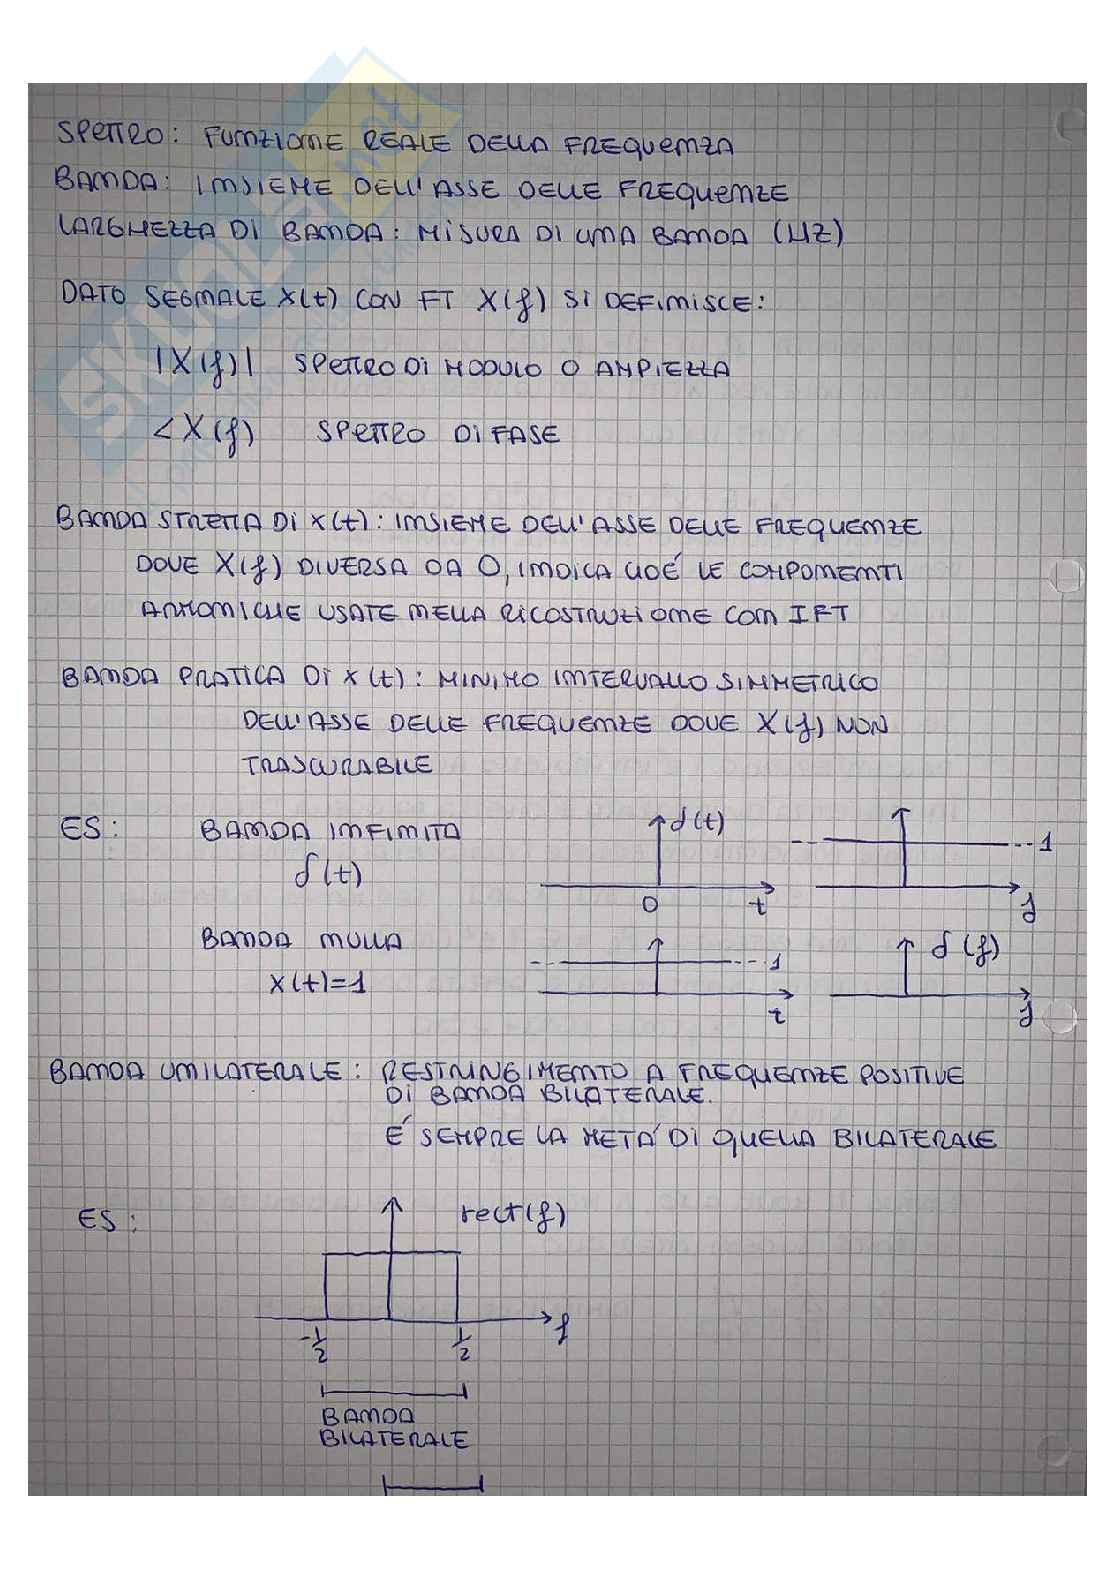 SPETTRO: FUNZIONE REALE DELLA FREQUENZA
BANDA: INSIEME DELL'ASSE DELLE FREQUENZE
LARGHEZZA DI BANDA: MISURA DI UNA BANDA (HZ)
DATO SEGNALE X(t) CON FT X(f) SI DEFINISCE:
|X(f)| SPETTRO DI MODULO O AMPIEZZA
<X(f) SPETTRO DI FASE
BANDA STRETTA DI X(t): INSIEME DELL'ASSE DELLE FREQUENZE
DOVE X(f) DIVERSA DA 0, INDICA CIOÉ LE COMPONENTI
ARMONICHE USATE NELLA RICOSTRUZIONE CON IFT
BANDA PRATICA DI X(t): MINIMO INTERVALLO SIMMETRICO
DELL'ASSE DELLE FREQUENZE DOVE X(f) NON
TRASCURABILE
ES: BANDA INFINITA δ(t) 1
δ(t) 0 t f
BANDA NULLA δ(f)
X(t)=1 1 t f
BANDA UNILATERALE: RESTRINGIMENTO A FREQUENZE POSITIVE
DI BANDA BILATERALE.
É SEMPRE LA METÁ DI QUELLA BILATERALE
ES: rect(f)
f
-1/2 1/2
BANDA
BILATERALE